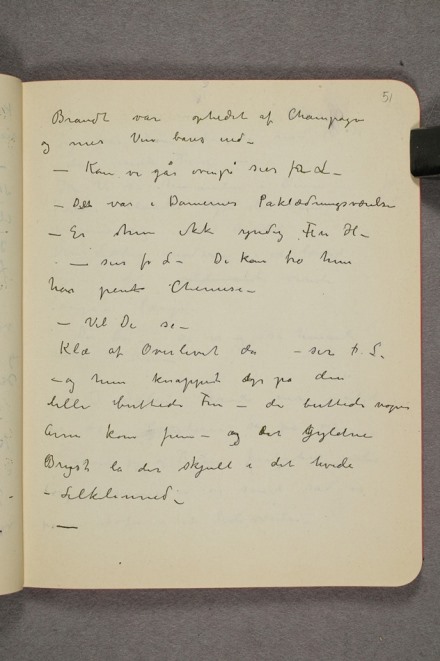 51
Brandt var ophedet af Champagne
og mer Vin bares ind –
– Kan vi gås ovenpå sier fru L –
– Det var i Damernes Paklædningsværelse
– Er hun ikke yndig Fru H –
– sier fr L – De kan tro hun
har pent Chemise –
– Vil De se –
Klæ af Overlivet da – sier F. L.
– og hun knapped op på den
lille buttede Fru – de buttede
Arme kom frem – og det gyldne
Bryst la der skjult i det hvide
– Silkelinned –